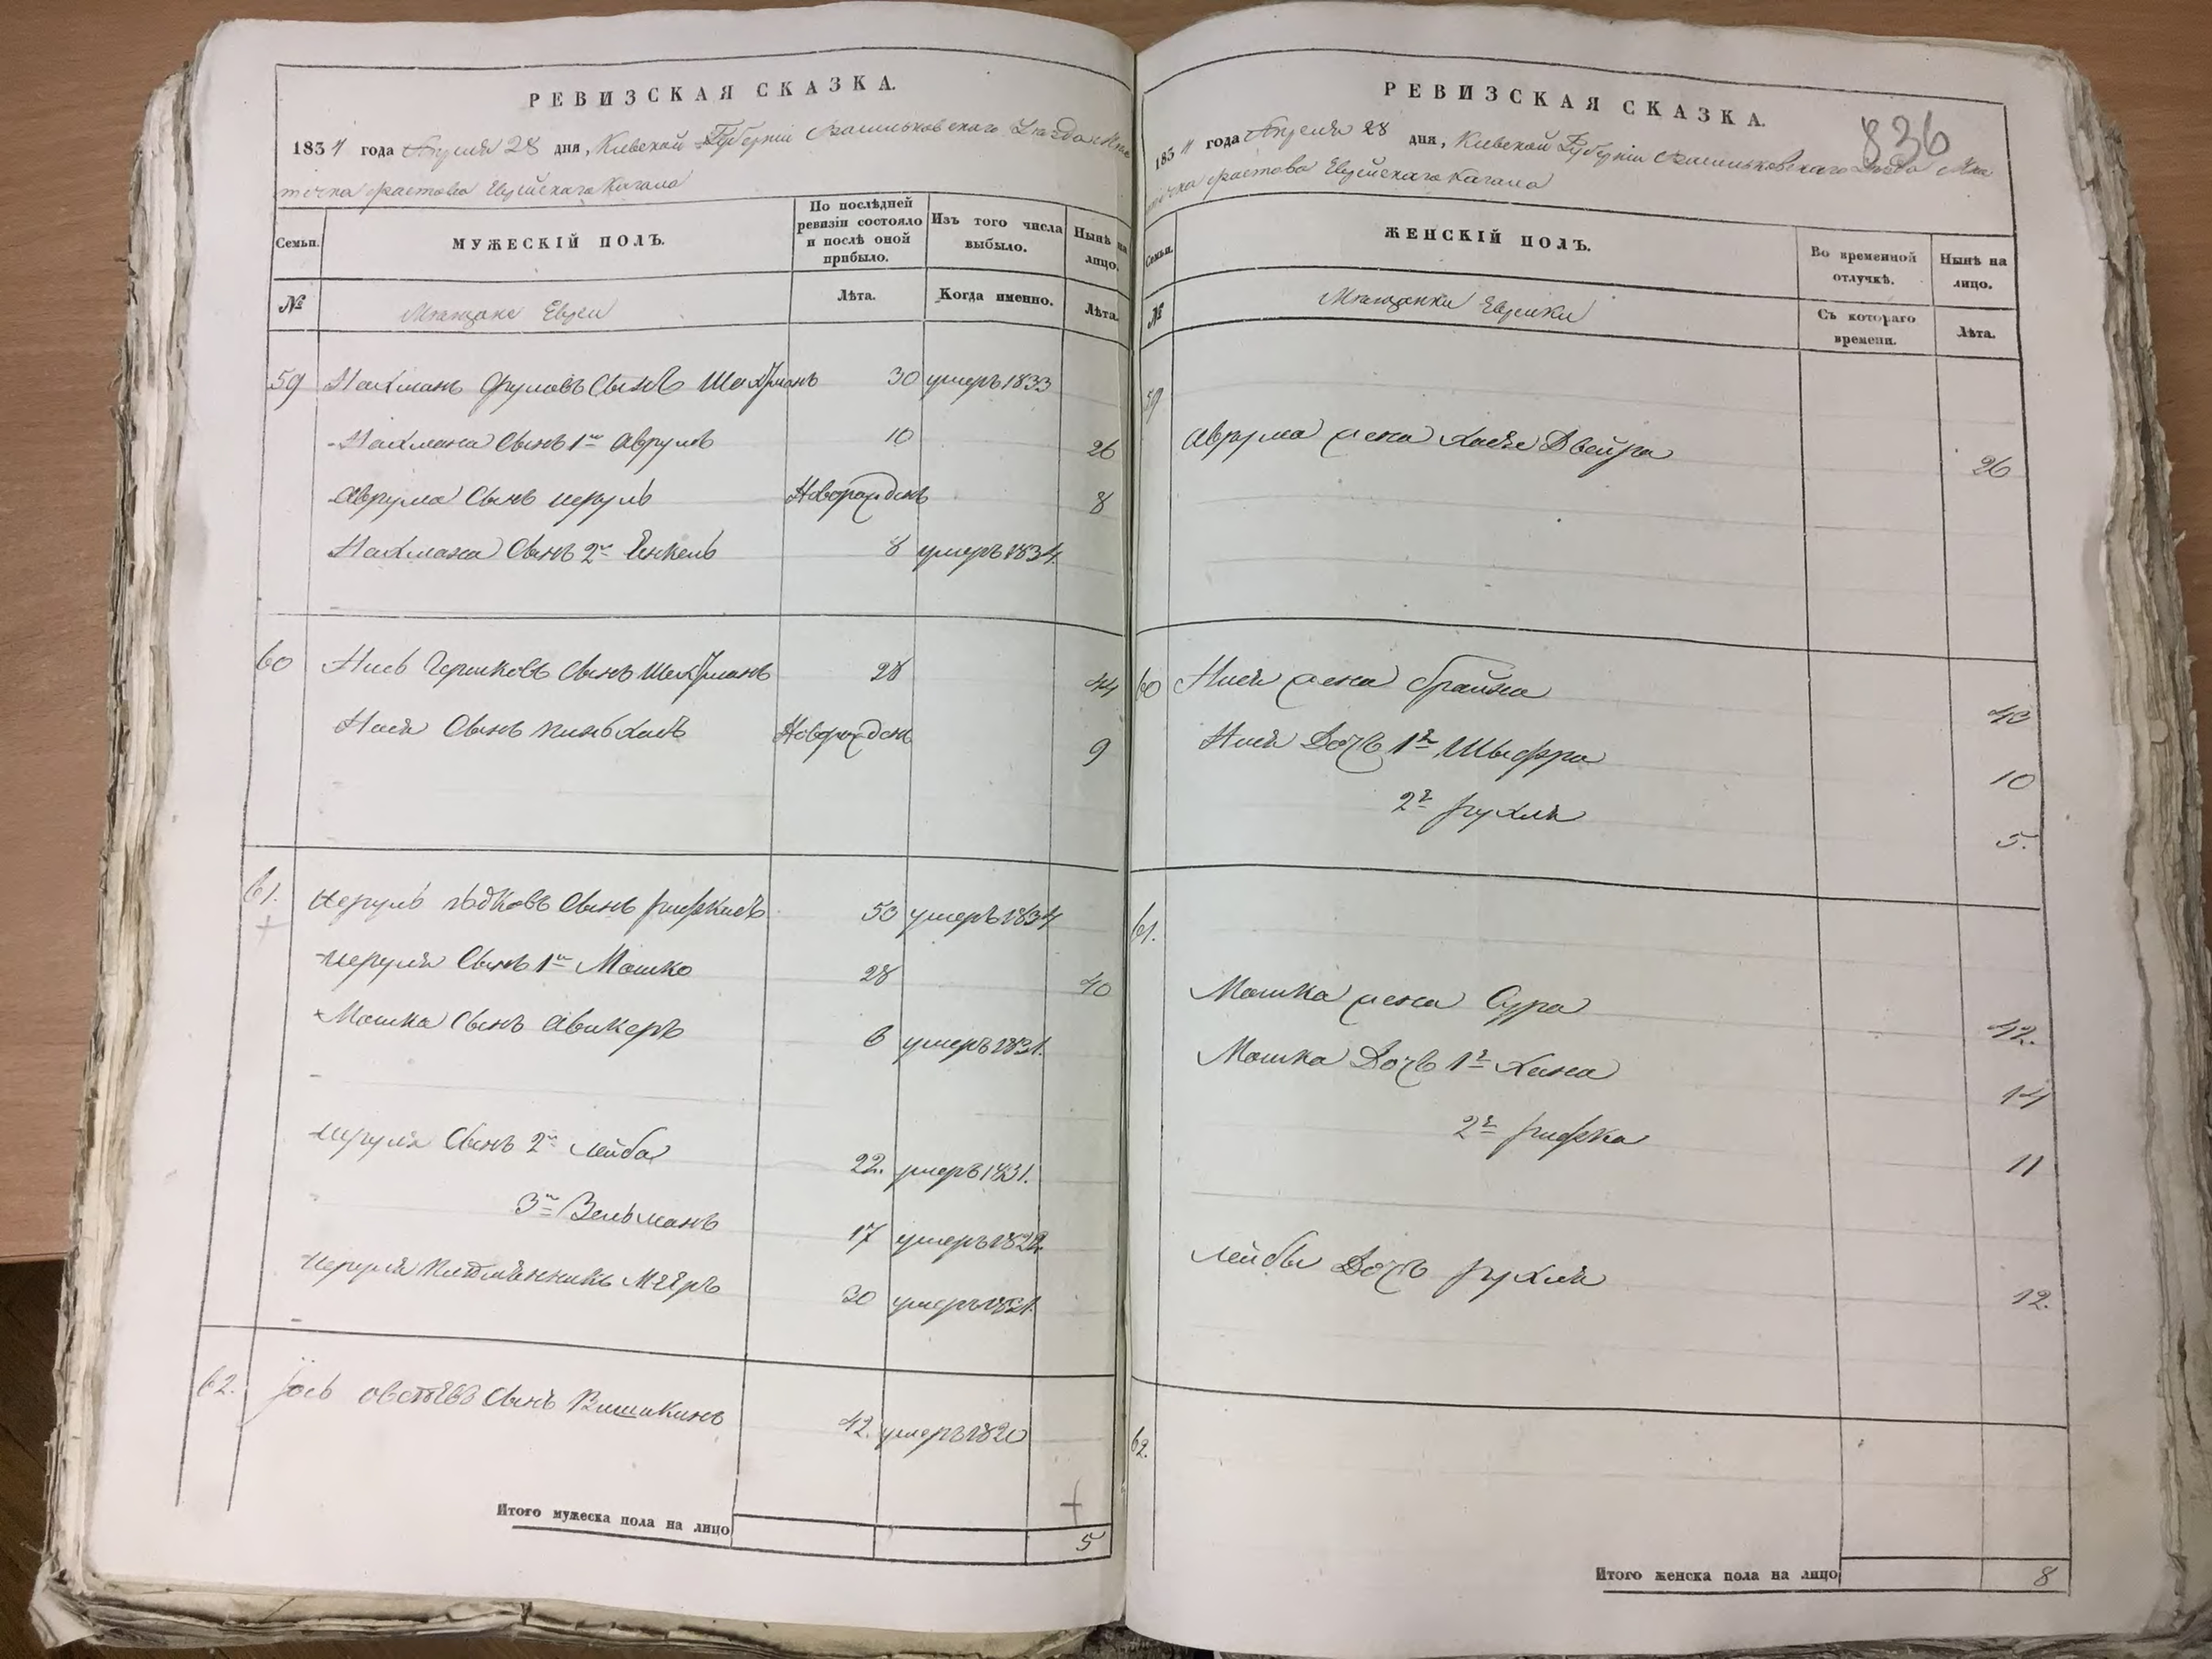 РЕВИЗСКАЯ СКАЗКА.
1834 года Апреля 28 дня, Киевской Губерніи Васильковскаго Уезда Мѣс
течка Фастова Еврейскаго Кагала
Семьи.
МУЖЕСКІЙ ПОЛЪ.
По послѣдней ревизіи состояло и послѣ оной прибыло.
Изъ того числа выбыло.
Нынѣ на лицо.
№
Мѣщане Евреи
Лѣта.
Когда именно.
Лѣта.
59 Нахманъ Сынъ 30 умеръ 1833
Нахмана Сынъ 1й Аврумъ 10 26
Аврума Сынъ Исруль Новорожденъ 8
Нахмана Сынъ 2й Енкель 8 умеръ 1834.
60 Гершковъ Сынъ 28 44
Сынъ Пиньхасъ Новорожденъ 9
61. Исруль Сынъ 50 умеръ 1834
Исруля Сынъ 1й Мошко 28 40
Мошка Сынъ 6 умеръ 1831.
Исруля Сынъ 2й Лейба 22. умеръ 1831.
3й Зельманъ 17 умеръ
Исруля Племѣнникъ Мѣеръ 30 умеръ 1821.
62. Іось Сынъ 42. умеръ 1820
Итого мужеска пола на лицо 5
РЕВИЗСКАЯ СКАЗКА.
836
1834 года Апреля 28 дня, Киевской Губерніи Васильковскаго Уезда Мѣс
течка Фастова Еврейскаго Кагала
Семьи.
ЖЕНСКІЙ ПОЛЪ.
Во временной отлучкѣ.
Нынѣ на лицо.
№
Мѣщанки Еврейки
Съ котораго времени.
Лѣта.
59
Аврума жена Двейра 26
60 жена Брайна
Дочь 1я Шыфра 10
2я Рухля 5.
61.
Мошка жена Сура 42.
Мошка Дочь 1я Хана 14
2я Рифка 11
Лейбы Дочь Рухля 12.
62.
Итого женска пола на лицо 8